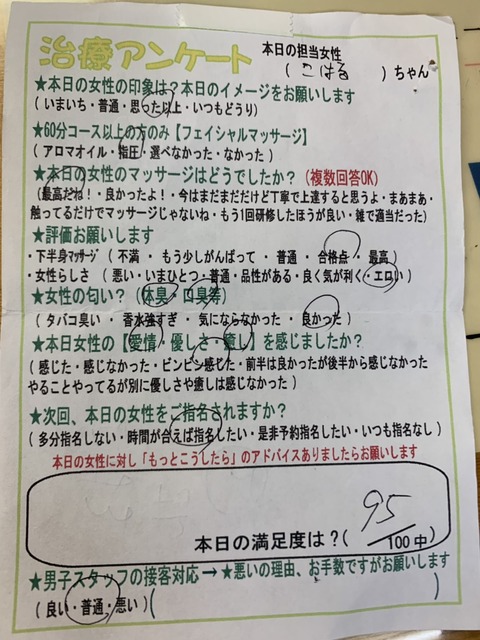 治療アンケート
本日の担当女性
( こはる )ちゃん
★本日の女性の印象は?本日のイメージをお願いします
( いまいち・普通・思った以上・いつもどうり )
★60分コース以上の方のみ【フェイシャルマッサージ】
( アロマオイル・指圧・選べなかった・なかった )
★本日の女性のマッサージはどうでしたか?(複数回答OK)
(最高だね!・良かったよ!・今はまだまだだけど丁寧で上達すると思うよ・まあまあ・
触ってるだけでマッサージじゃないね・もう1回研修したほうが良い・雑で適当だった)
★評価お願いします
・下半身マッサージ ( 不満 ・ もう少しがんばって ・ 普通 ・ 合格点 ・ 最高 )
・女性らしさ ( 悪い・いまひとつ・普通・品性がある・良く気が利く・エロい )
★女性の匂い?(体臭・口臭等)
( タバコ臭い ・ 香水強すぎ ・ 気にならなかった ・ 良かった )
★本日女性の【愛情・優しさ・癒し】を感じましたか?
( 感じた・感じなかった・ビンビン感じた・前半は良かったが後半から感じなかった
やることやってるが別に優しさや癒しは感じなかった )
★次回、本日の女性をご指名されますか?
( 多分指名しない・時間が合えば指名したい・是非予約指名したい・いつも指名なし )
本日の女性に対し「もっとこうしたら」のアドバイスありましたらお願いします
本日の満足度は?( 95/100中)
★男子スタッフの接客対応→★悪いの理由、お手数ですがお願いします
( 良い・普通・悪い )( )